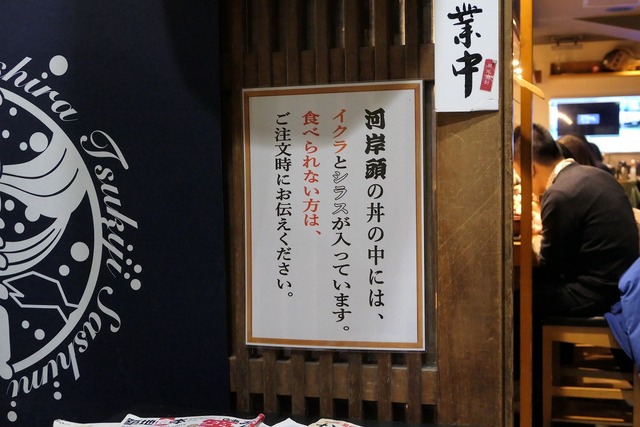 業中
河岸頭の丼の中には、
イクラとシラスが入っています。
食べられない方は、
ご注文時にお伝えください。
shira Tsukiji Sashimi